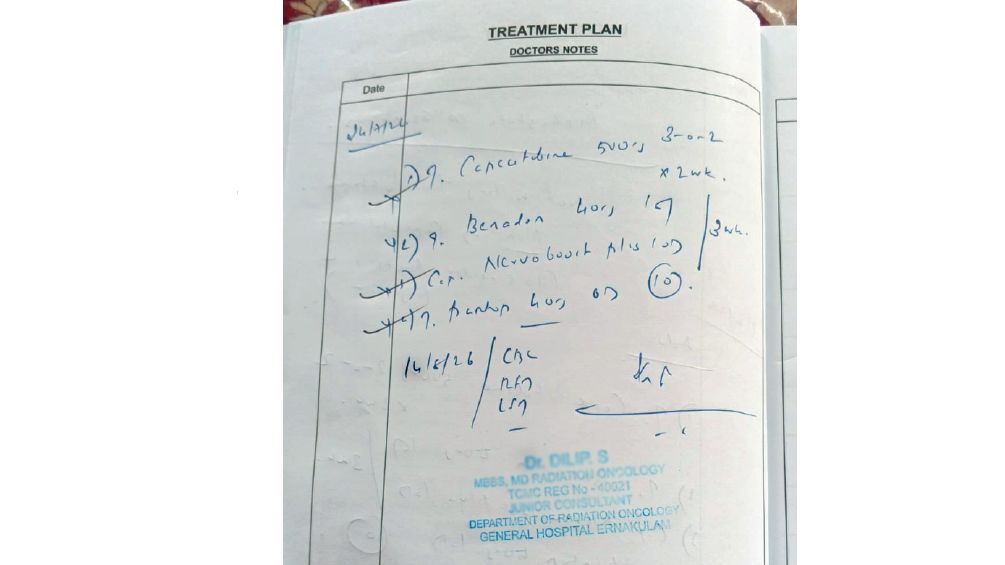 TREATMENT PLAN
DOCTORS NOTES
Date
1) T. Capecitabine 500mg 3-0-2
x 2wk.
2) T. Benadon 40mg 1 OD
3wk.
Cap. Nervoboost plus 1 OD
T. Pantop 40mg OD 10.
14/8/26 CBC
RFT
LFT
Dr. DILIP. S
MBBS, MD RADIATION ONCOLOGY
TCMC REG No - 40021
JUNIOR CONSULTANT
DEPARTMENT OF RADIATION ONCOLOGY
GENERAL HOSPITAL ERNAKULAM